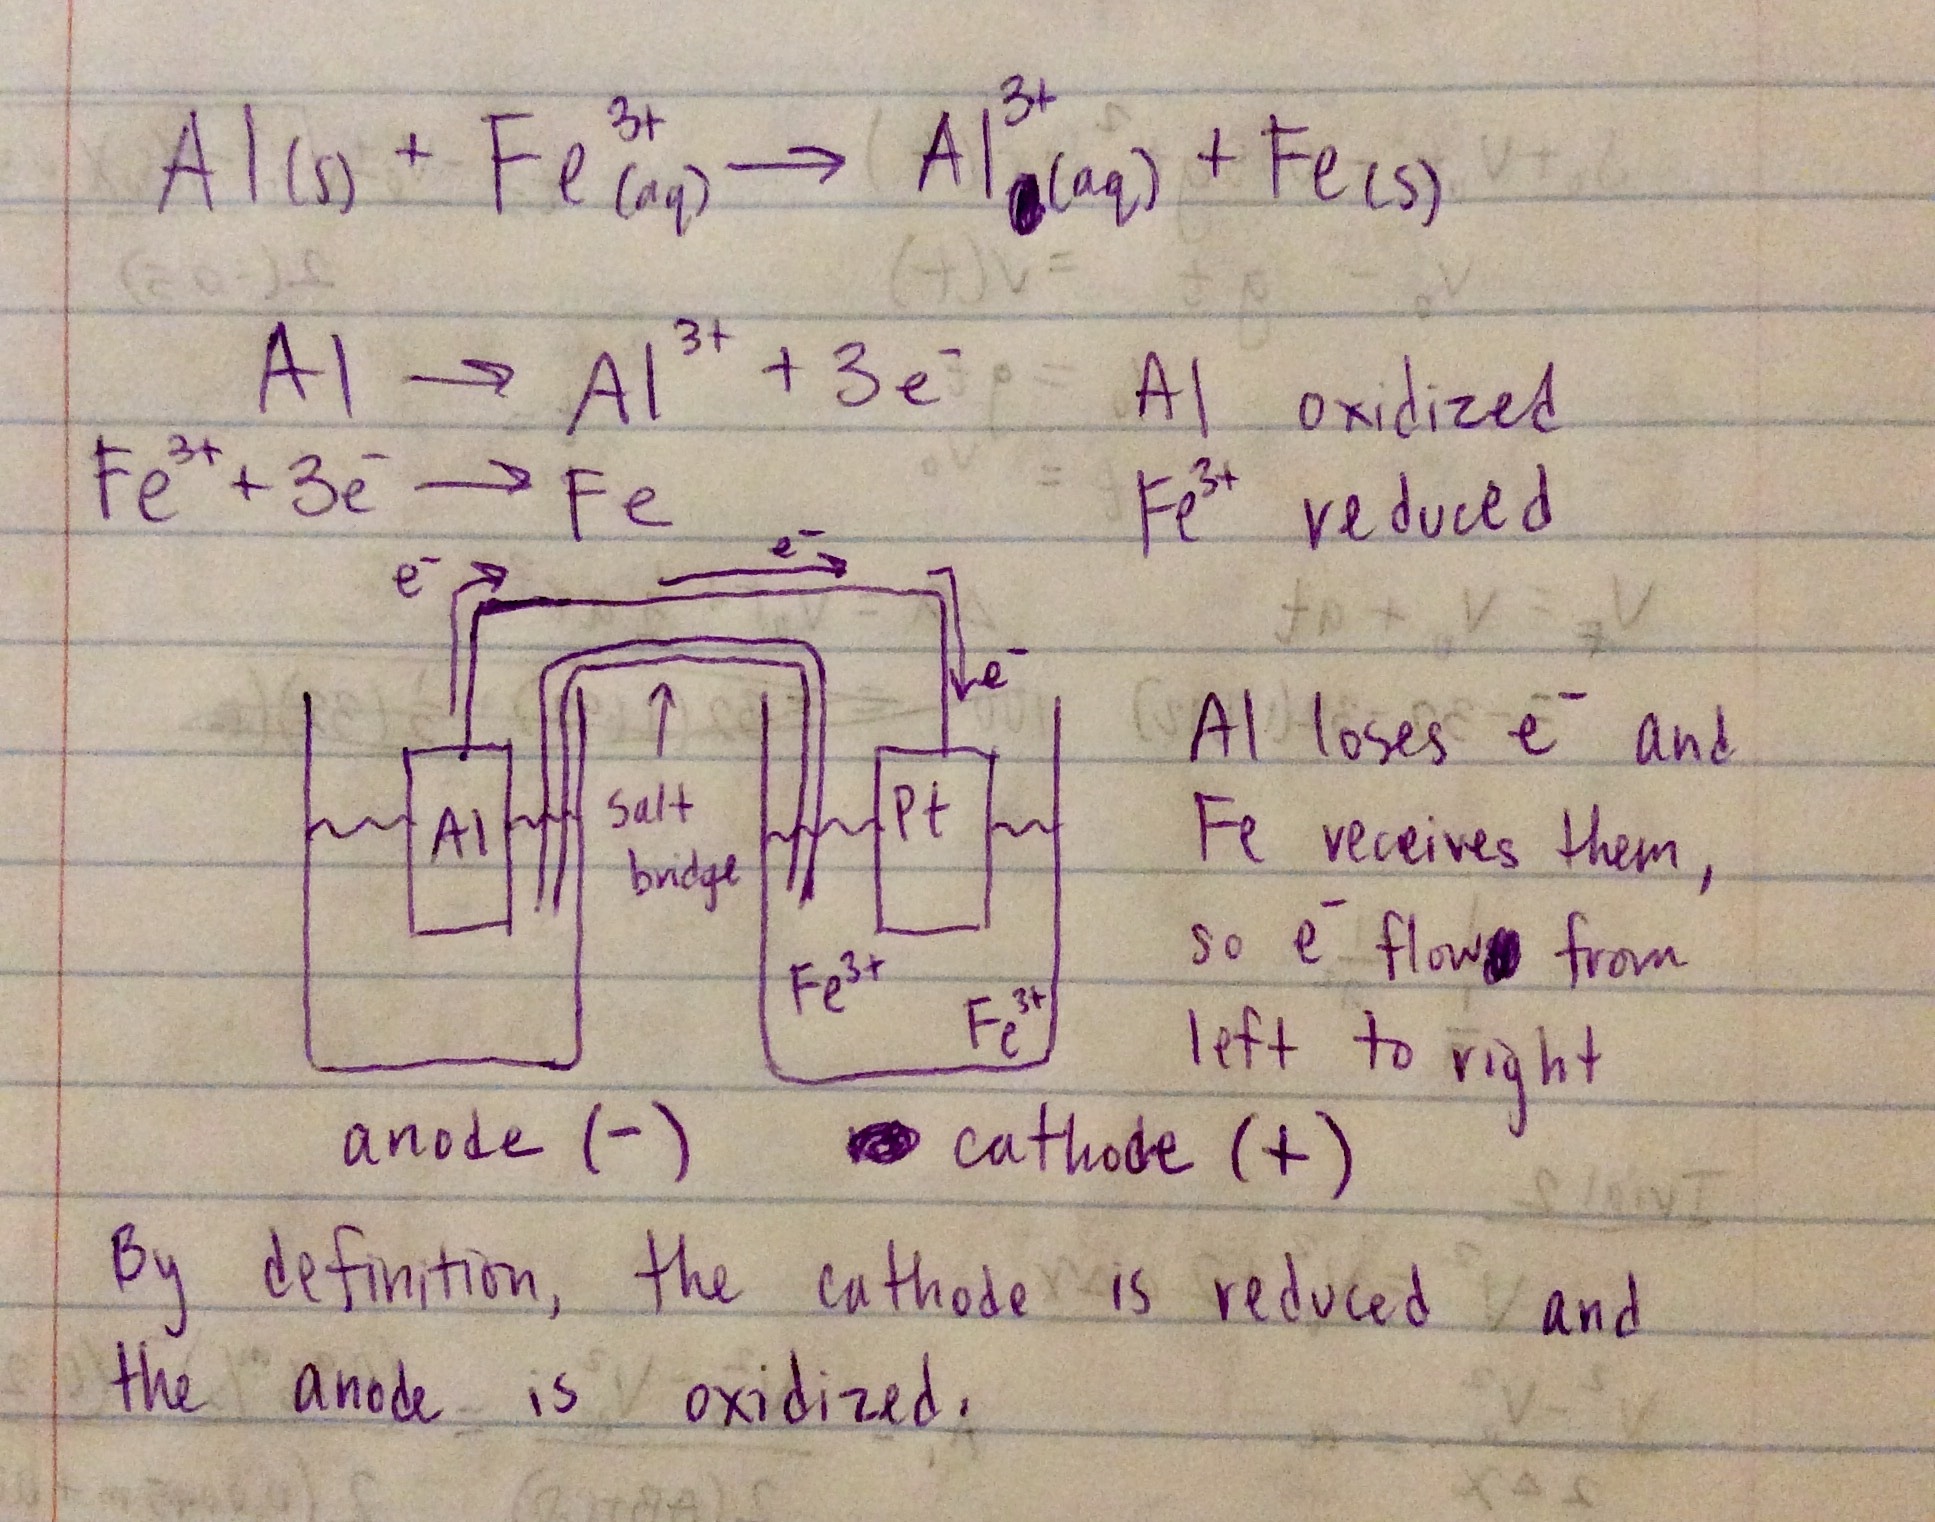 Al(s) + Fe³⁺(aq) → Al³⁺(aq) + Fe(s)
Al → Al³⁺ + 3e⁻ Al oxidized
Fe³⁺ + 3e⁻ → Fe Fe³⁺ reduced
e⁻ e⁻
e⁻
Al salt bridge Pt
Fe³⁺
Fe³⁺
Al loses e⁻ and
Fe receives them,
so e⁻ flow from
left to right
anode (-) cathode (+)
By definition, the cathode is reduced and
the anode is oxidized.